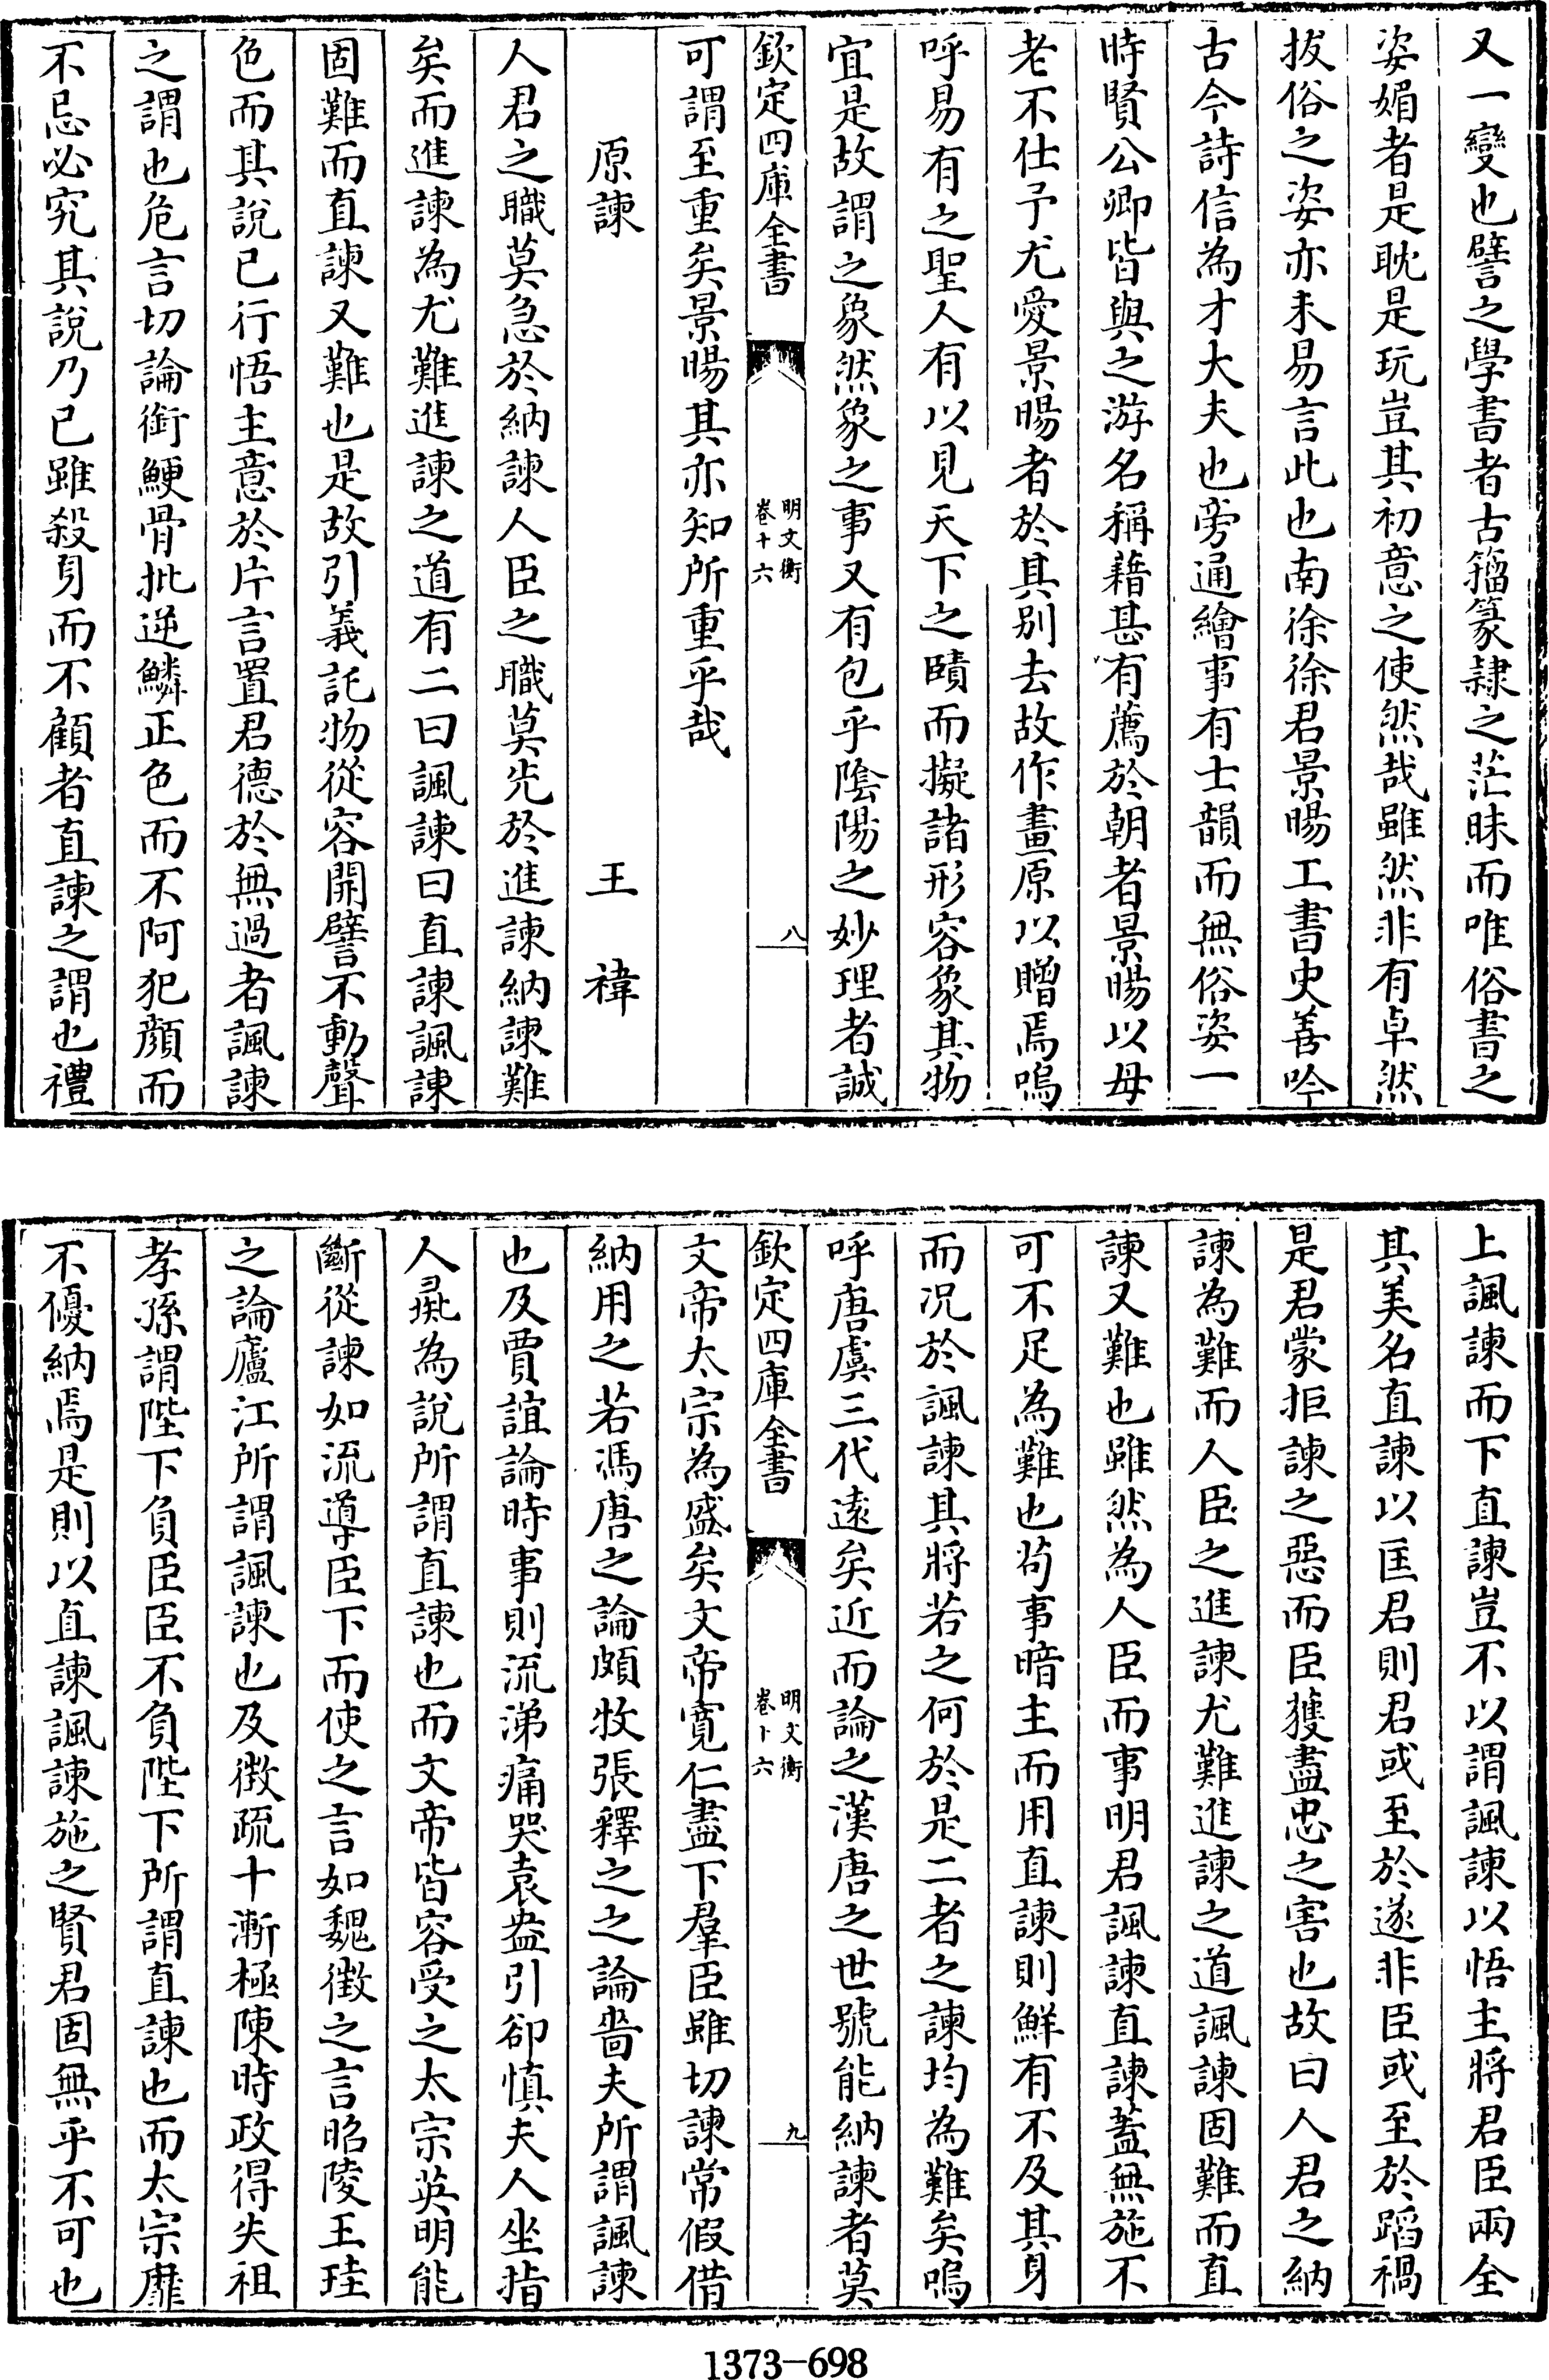 又一變也譬之學書者古籀篆隷之茫昧而唯俗書之
姿媚者是耽是玩豈其初意之使然哉雖然非有卓然
拔俗之姿亦未易言此也南徐徐君景暘工書史善吟
古今詩信為才大夫也旁通繪事有士韻而無俗姿一
時賢公卿皆與之游名稱藉甚有薦於朝者景暘以母
老不仕予尤愛景暘者於其别去故作畫原以贈焉嗚
呼易有之聖人有以見天下之賾而擬諸形容象其物
宜是故謂之象然象之事又有包乎陰陽之妙理者誠
欽定四庫全書
明文衡
卷十六
八
可謂至重矣景暘其亦知所重乎哉
原諫 王禕
人君之職莫急於納諫人臣之職莫先於進諫納諫難
矣而進諫為尤難進諫之道有二曰諷諫曰直諫諷諫
固難而直諫又難也是故引義託物從容開譬不動聲
色而其說已行悟主意於片言置君德於無過者諷諫
之謂也危言切論銜鯁骨批逆鱗正色而不阿犯顔而
不忌必究其說乃已雖殺身而不顧者直諫之謂也禮
上諷諫而下直諫豈不以謂諷諫以悟主將君臣兩全
其美名直諫以匡君則君或至於遂非臣或至於蹈禍
是君蒙拒諫之惡而臣獲盡忠之害也故曰人君之納
諫為難而人臣之進諫尤難進諫之道諷諫固難而直
諫又難也雖然為人臣而事明君諷諫直諫蓋無施不
可不足為難也茍事暗主而用直諫則鮮有不及其身
而况於諷諫其將若之何於是二者之諫均為難矣嗚
呼唐虞三代遠矣近而論之漢唐之世號能納諫者莫
欽定四庫全書
明文衡
卷十六
九
文帝太宗為盛矣文帝寛仁盡下羣臣雖切諫常假借
納用之若馮唐之論頗牧張釋之之論嗇夫所謂諷諫
也及賈誼論時事則流涕痛哭袁盎引卻慎夫人坐指
人彘為說所謂直諫也而文帝皆容受之太宗英明能
斷從諫如流導臣下而使之言如魏徴之言昭陵王珪
之論廬江所謂諷諫也及徴疏十漸極陳時政得失祖
孝孫謂陛下負臣臣不負陛下所謂直諫也而太宗靡
不優納焉是則以直諫諷諫施之賢君固無乎不可也
1373-698